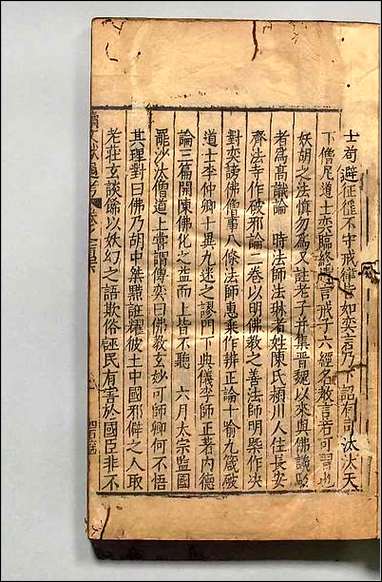 士苟避征徭不守戒律皆如奕言乃下詔有司汰汰天
下僧尼道士奕臨終誡言戒子六經名教言若可習也
妖胡之法慎勿為又註老子并集晋魏以來與佛議駁
者為高識論 時法師法琳者姓陳氏潁川人住長安
齊法寺作破邪論二卷以明佛教之善法師明槩作决
對奕謗佛僧事八條法師惠乗作辨正論十喻九箴破
道士李仲卿十異九迷之謬門下典儀李師正著内德
論三篇開陳佛化之益而上皆不聽 六月太宗監國
罷沙汰僧道上甞謂傅奕曰佛教玄妙可師卿何不悟
其理對曰佛乃胡中桀黠誑耀彼土中國邪僻之人取
老莊玄談餙以妖幻之語欺俗誑民有害於國臣非不